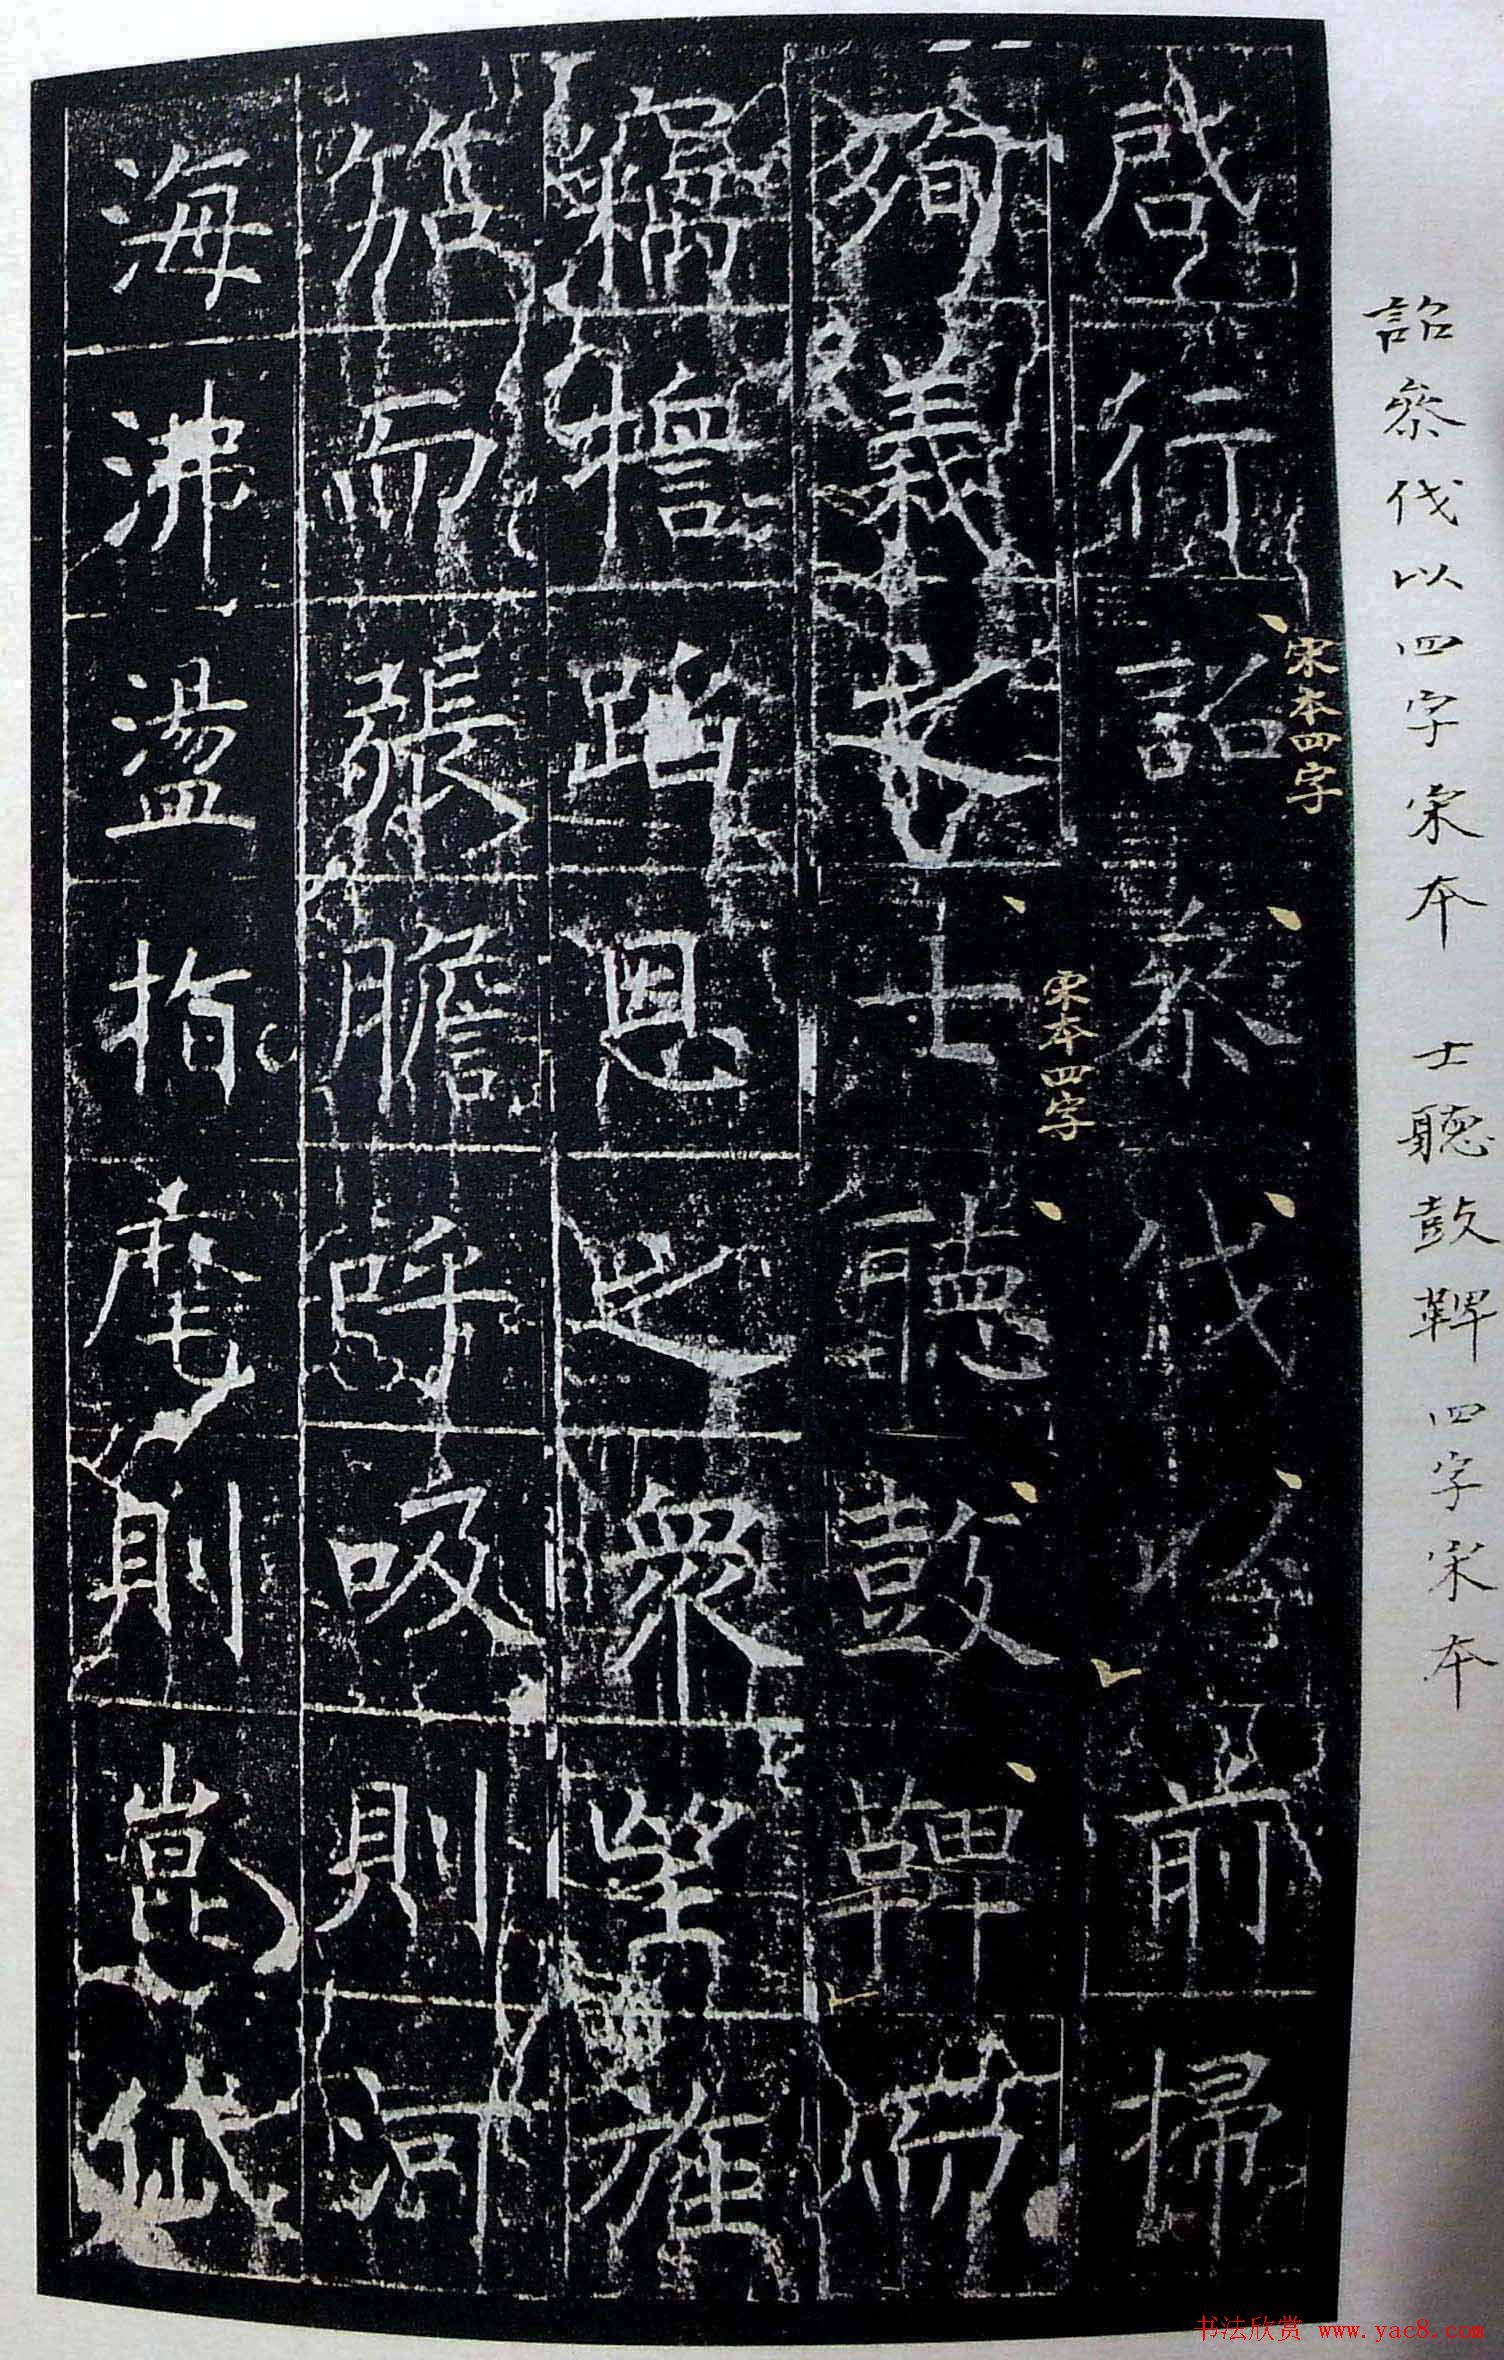 詔叅伐以四字宋本 士聽鼓鞞四字宋本
啓行詔叅伐以前掃
宋本四字
殉義之士聽鼓鞞而
宋本四字
竊蹈恩之衆望旌
而張膽呼吸則河
海沸盪指麾則崑岱
书法欣赏 www.yac8.com